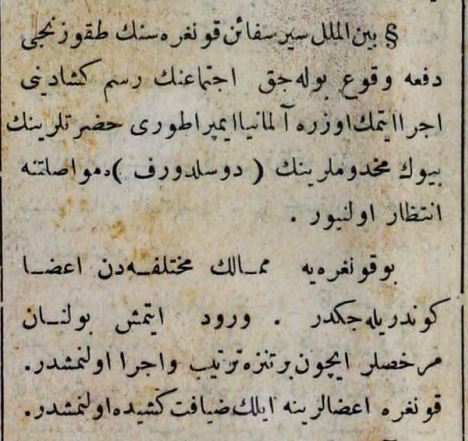 § بین الملل سیر سفائن قونغره سنك طقوزنجی
دفعه وقوع بوله جق اجتماعنك رسم كشادینی
اجرا ایتمك اوزره آلمانیا ایمپراطوری حضرتلرینك
بیوك مخدوملرینك ( دوسلدورف )ه مواصلتنه
انتظار اولنیور .
بوقونغره یه ممالك مختلفه دن اعضا
كوندریله جكدر . ورود ایتمش بولنان
مرخصلر ایچون بر تنزه ترتیب واجرا اولنمشدر.
قونغره اعضالرینه ایلك ضیافت كشیده اولنمشدر.